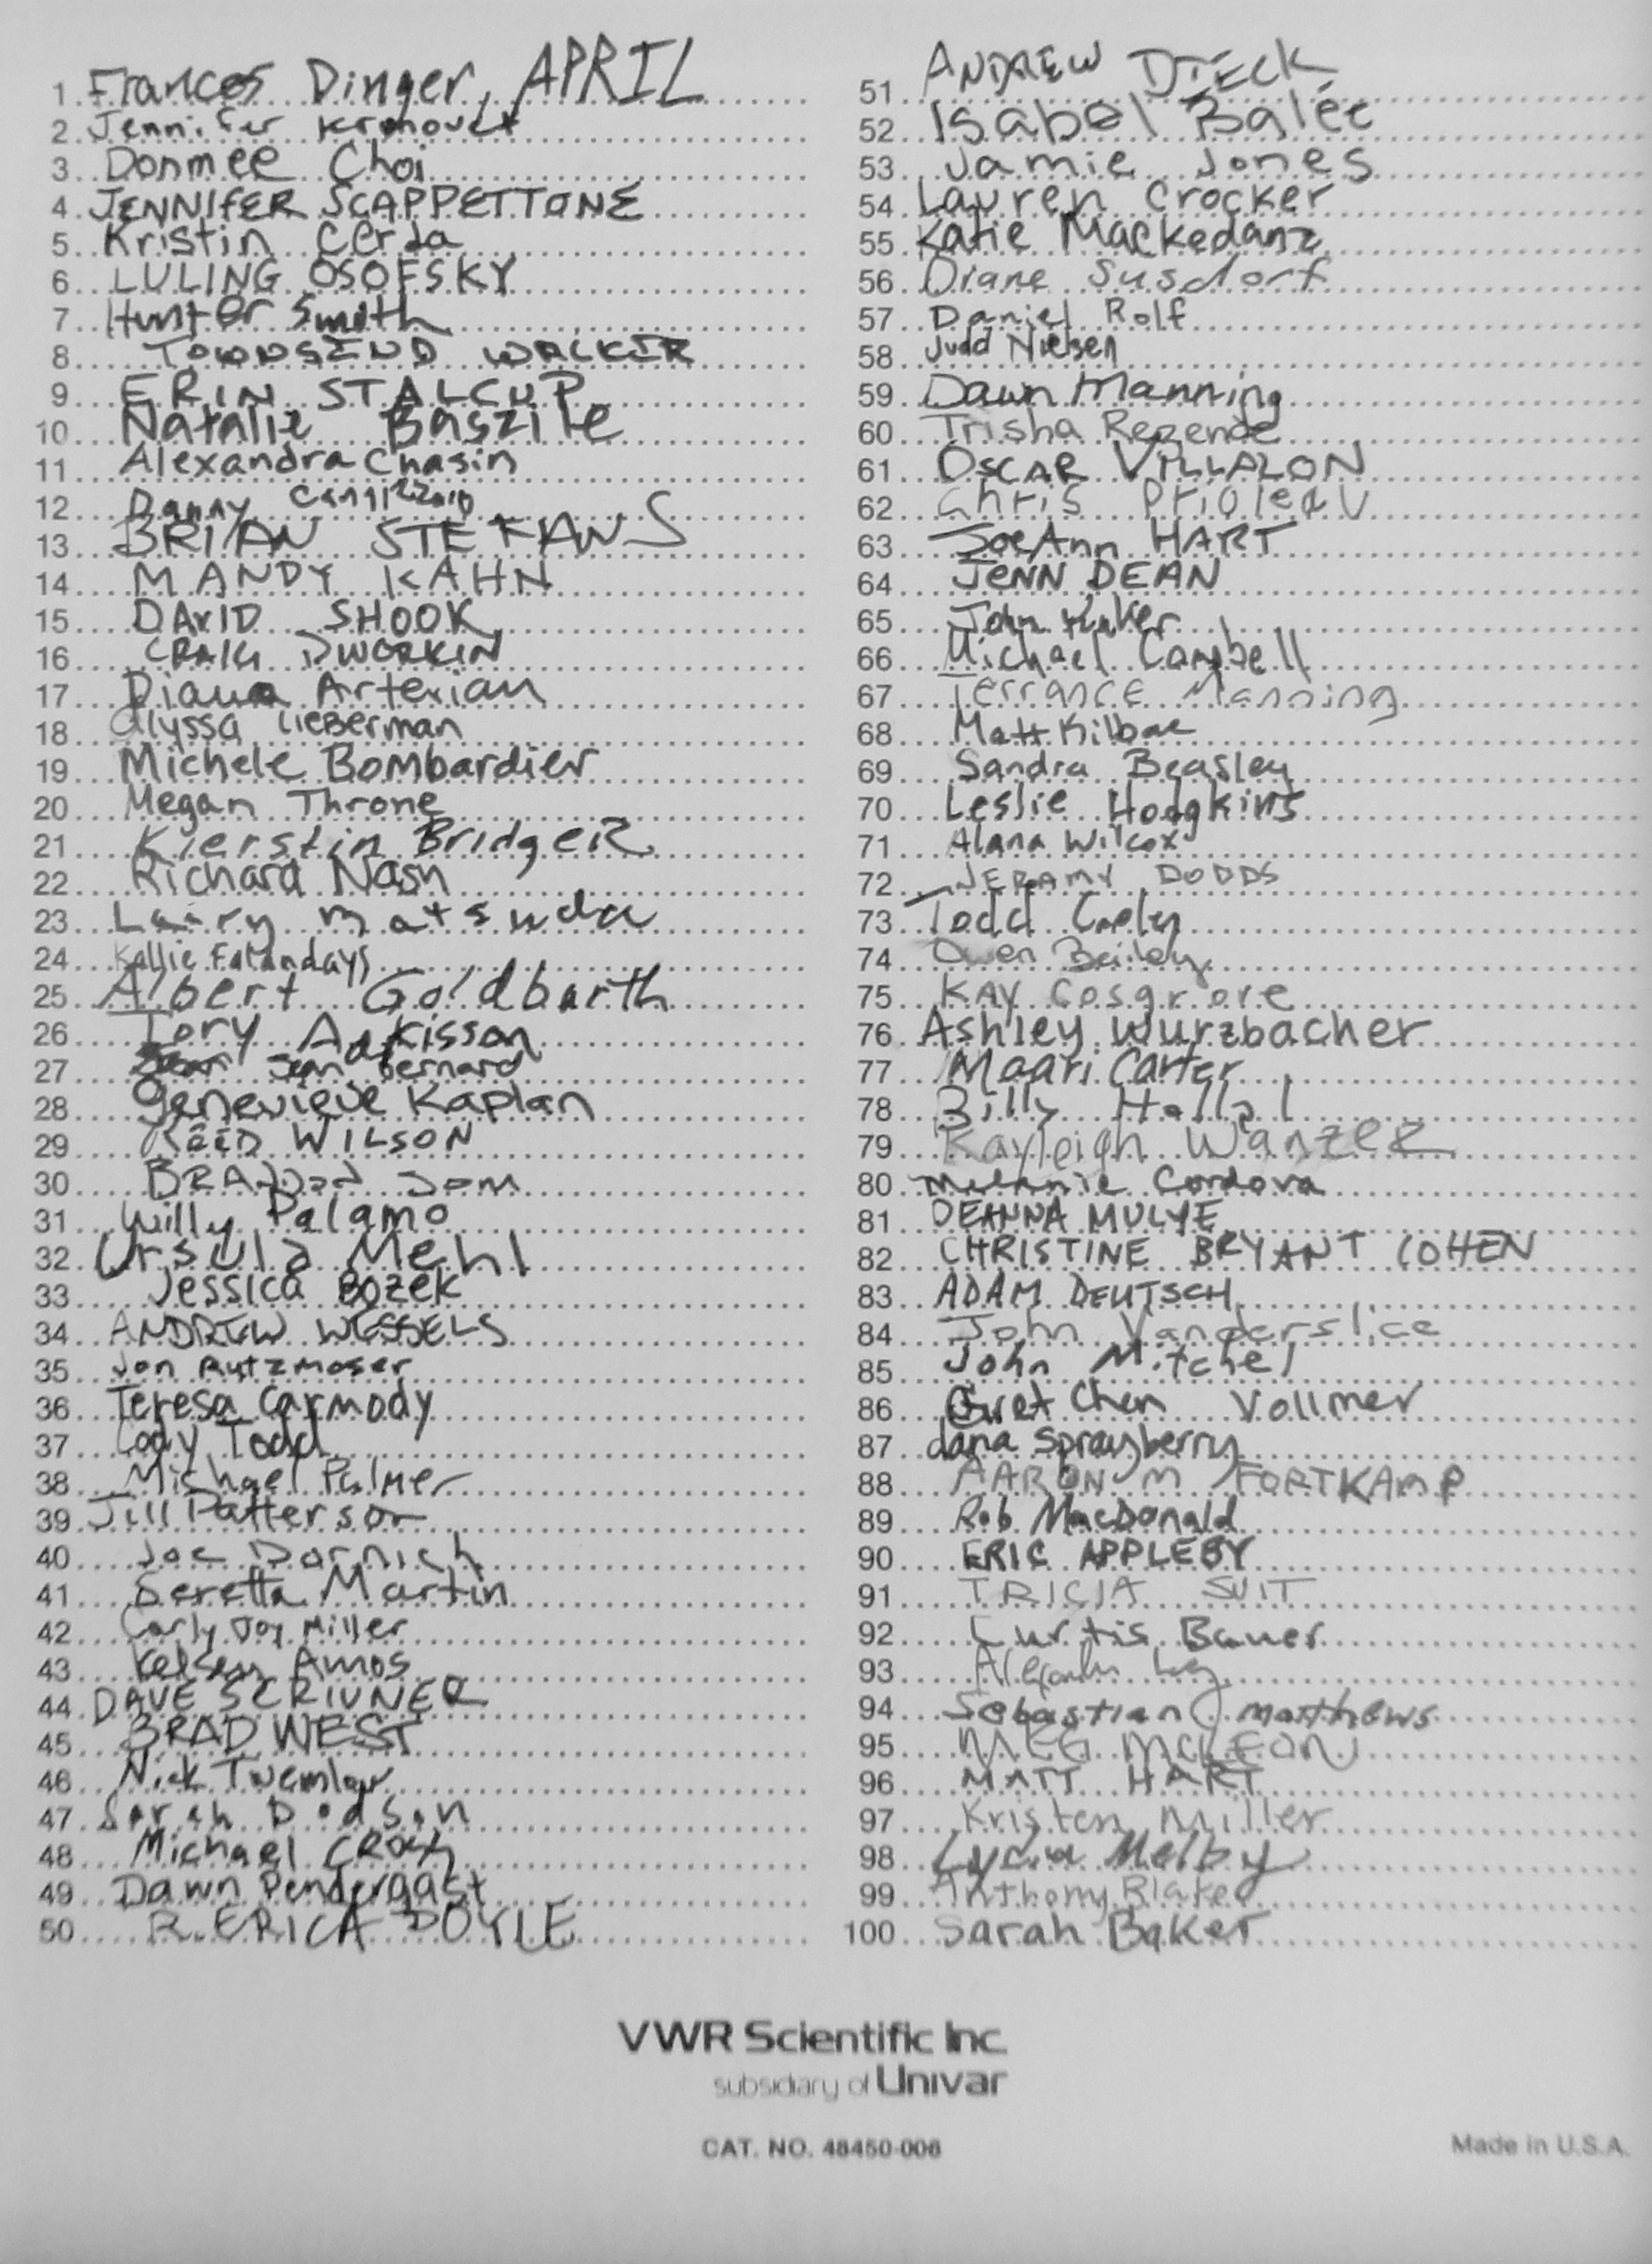 1 Frances Dinger, APRIL
2 Jennifer Kronovet
3 Donmee Choi
4 JENNIFER SCAPPETTONE
5 Kristin Cerda
6 LULING OSOFSKY
7 Hunter Smith
8 TOWNSEND WALKER
9 ERIN STALCUP
10 Natalie Baszile
11 Alexandra Chasin
12 Danny
13 BRIAN STEFANS
14 MANDY KAHN
15 DAVID SHOOK
16 CRAIG DWORKIN
17 Diana Arterian
18 alyssa lieberman
19 Michele Bombardier
20 Megan Throne
21 Kierstin BridgeR
22 Richard Nash
23 Larry Matsuda
24 Kallie Falandays
25 Albert Goldbarth
26 Tory Adkisson
27 Sean Bernard
28 Genevieve Kaplan
29 REED WILSON
30 BRANDON SOM
31 Willy Palomo
32 Ursula Mehl
33 Jessica Bozek
34 ANDREW WESSELS
35 Jon Rutzmoser
36 Teresa Carmody
37 Cody Todd
38 Michael Palmer
39 Jill Patterson
40 Joe Dornich
41 Seretta Martin
42 Carly Joy Miller
43 Kelsey Amos
44 DAVE SCRIVNER
45 BRAD WEST
46 Nick Twemlow
47 Sarah Dodson
48 Michael
49 Dawn Pendergast
50 R. ERICA DOYLE
51 ANDREW DIECK
52 Isabel Balée
53 Jamie Jones
54 Lauren Crocker
55 Katie Mackedanz
56 Diane Susdorf
57 Daniel Rolf
58 Judd Nielsen
59 Dawn Manning
60 Trisha Rezende
61 OSCAR VILLALON
62 Chris Prioleau
63 JoeAnn HART
64 JENN DEAN
65 John
66 Michael Campbell
67 Terrance Manning
68 Matt Kilbane
69 Sandra Beasley
70 Leslie Hodgkins
71 Alana Wilcox
72 JERAMY DODDS
73 Todd
74 Owen Bailey
75 KAY Cosgrove
76 Ashley Wurzbacher
77 Maari Carter
78 Billy Hallal
79 Kayleigh Wanzer
80 Melanie Cordova
81 DEANNA MULYE
82 CHRISTINE BRYANT COHEN
83 ADAM DEUTSCH
84 John Vanderslice
85 John Mitchel
86 Gretchen Vollmer
87 dana sprayberry
88 AARON M FORTKAMP
89 Rob MacDonald
90 ERIC APPLEBY
91 TRICIA SUIT
92 Curtis Bauer
93
94 Sebastian matthews
95 MEG MCKEON
96 MATT HART
97 Kristen Miller
98 Lydia Melby
99 Anthony Blake
100 Sarah Baker
VWR Scientific Inc.
subsidiary of Univar
CAT. NO. 48450-008
Made in U.S.A.